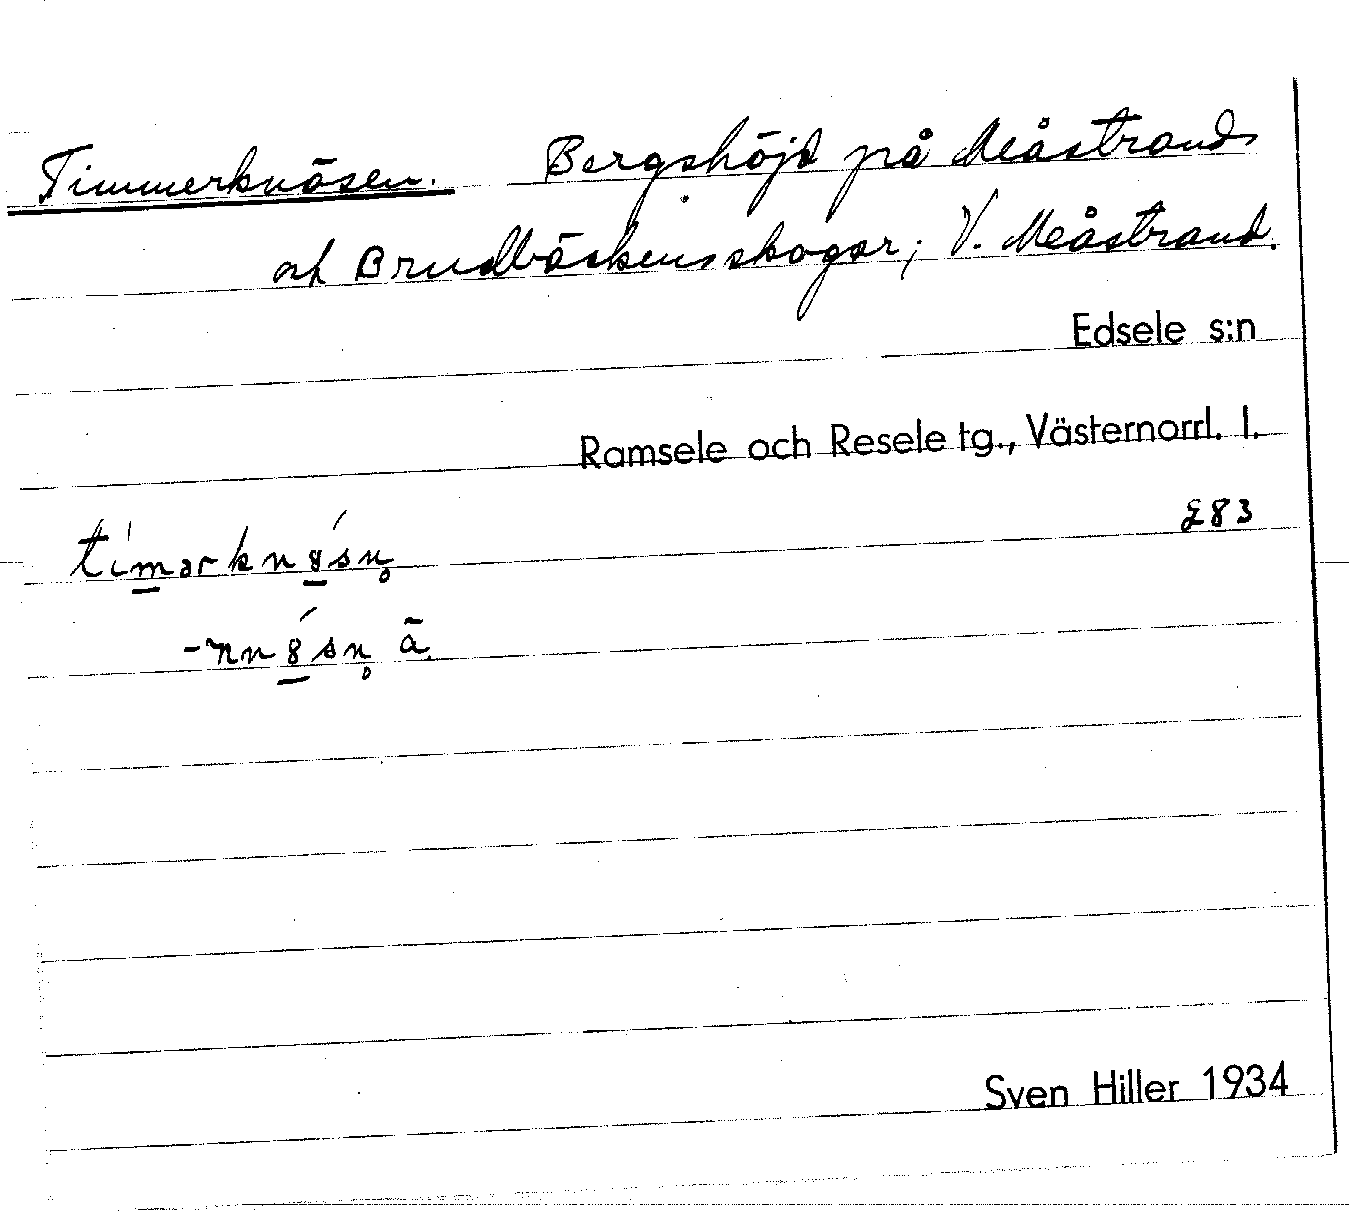 Timmerknösen. Bergshöjd på Meåstrands
och Brudbäckens skogar; V. Meåstrand.
Edsele s:n
Ramsele och Resele tg., Västernorrl. l.
£83
Sven Hiller 1934